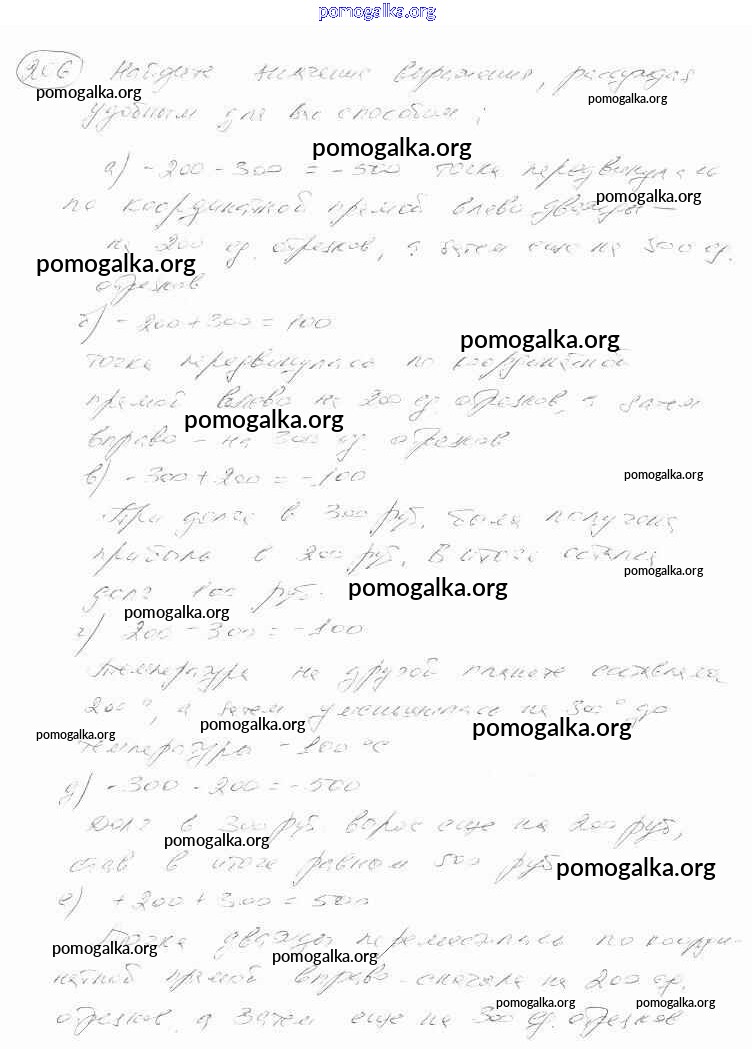 pomogalka.org
206 Найдите значение выражения, рассуждая
pomogalka.org pomogalka.org
удобным для вас способом:
pomogalka.org
а) -200 - 300 = -500 точка передвинулась
pomogalka.org
по координатной прямой влево дважды -
на 200 ед. отрезков, а затем еще на 300 ед.
pomogalka.org
отрезков
б) -200 + 300 = 100
pomogalka.org
точка передвинулась по координатной
прямой влево на 200 ед. отрезков, а затем
pomogalka.org
вправо - на 300 ед. отрезков
в) -300 + 200 = -100
pomogalka.org
При долге в 300 руб. была получена
прибыль в 200 руб. В итоге остался
pomogalka.org
долг 100 руб.
pomogalka.org
pomogalka.org
г) 200 - 300 = -100
Температура на другой планете составляла
200°, а затем уменьшилась на 300° до
pomogalka.org pomogalka.org
pomogalka.org
температуры -100°С
д) -300 - 200 = -500
Долг в 300 руб. вырос еще на 200 руб,
pomogalka.org
став в итоге равным 500 руб
pomogalka.org
е) +200 + 300 = 500
Точка дважды переместилась по коорди-
pomogalka.org pomogalka.org
натной прямой вправо - сначала на 200 ед.
pomogalka.org pomogalka.org
отрезков, а затем еще на 300 ед. отрезков